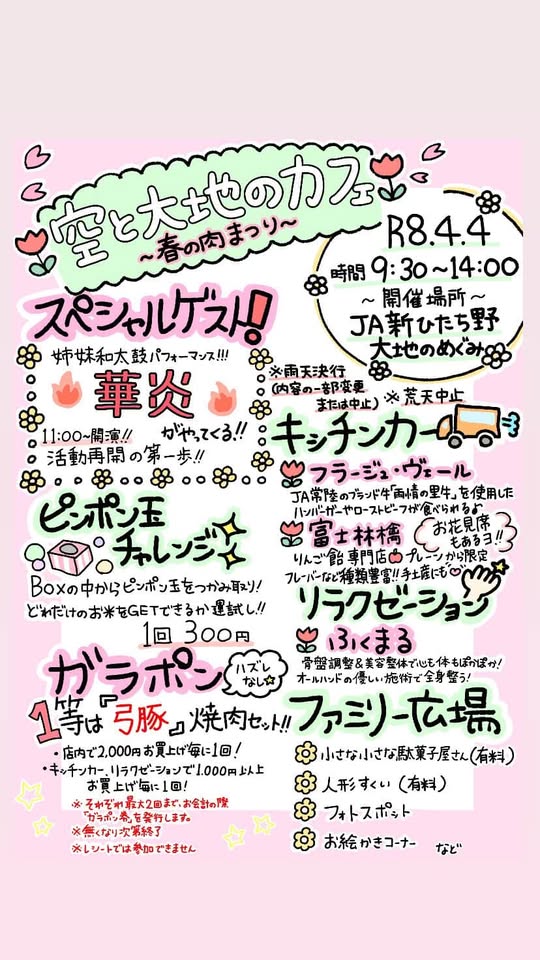 空と大地のカフェ
～春の肉まつり～
R8.4.4
時間 9:30～14:00
～開催場所～
JA新ひたち野
大地のめぐみ
※雨天決行
(内容の一部変更
または中止)
※荒天中止
スペシャルゲスト!
姉妹和太鼓パフォーマンス!!!
華炎
がやってくる!!
11:00～開演!!
活動再開の第一歩!!
ピンポン玉
チャレンジ
Boxの中からピンポン玉をつかみ取り!
どれだけのお米をGETできるか運試し!!
1回 300円
ガラポン
ハズレ
なし
1等は『弓豚』焼肉セット!!
・店内で2,000円お買上げ毎に1回!
・キッチンカー、リラクゼーションで1,000円以上
お買上げ毎に1回!
※それぞれ最大2回まで、お会計の際
「ガラポン券」を発行します。
※無くなり次第終了
※レシートでは参加できません
キッチンカー
フラージュ・ヴェール
JA常陸のブランド牛「雨情の里牛」を使用した
ハンバーガーやローストビーフが食べられる♪
富士林檎
お花見席
もあるヨ!!
りんご飴専門店 プレーンから限定
フレーバーなど種類豊富!!手土産にも
リラクゼーション
ふくまる
骨盤調整&美容整体で心も体もぽかぽか!
オールハンドの優しい施術で全身整う!
ファミリー広場
小さな小さな駄菓子屋さん(有料)
人形すくい(有料)
フォトスポット
お絵かきコーナー
など